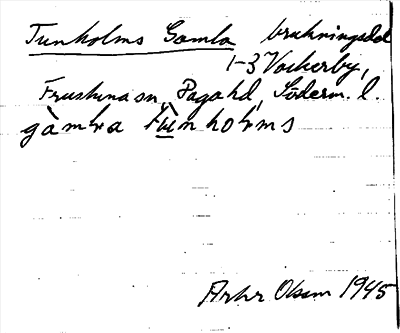 Tunholms Gamla brukningsdel
1-3 Vackerby,
Frustuna sn, Daga hd, Söderm. l.
gàmɫa tu̇̀nhoɫms
Arthr Olsson 1945